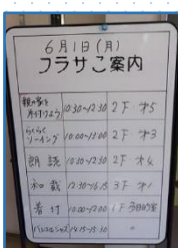 6月1日(月)
フラサこ案内
親の家を
片付けよう 10:30~12:30 2F オ5
らくらく
ソーイング 10:00~13:00 2F オ3
朗読 10:30~12:30 2F オ4
和裁 12:30~16:15 3F オ1
着付 10:00~12:00 1F
14:15~15:30 〃